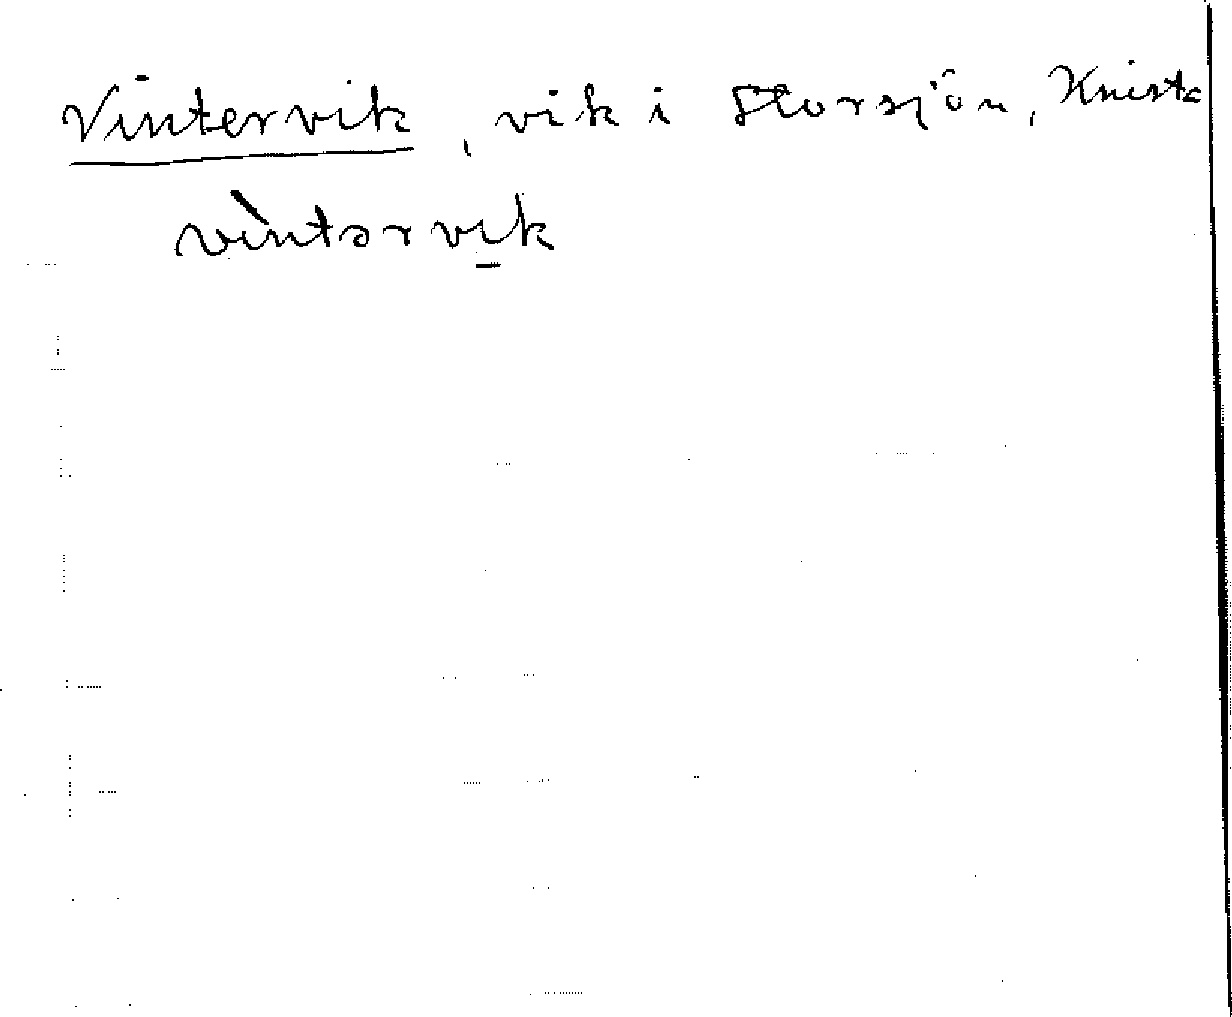 Vintervik, vik i Storsjön, Knista
vìntərvik